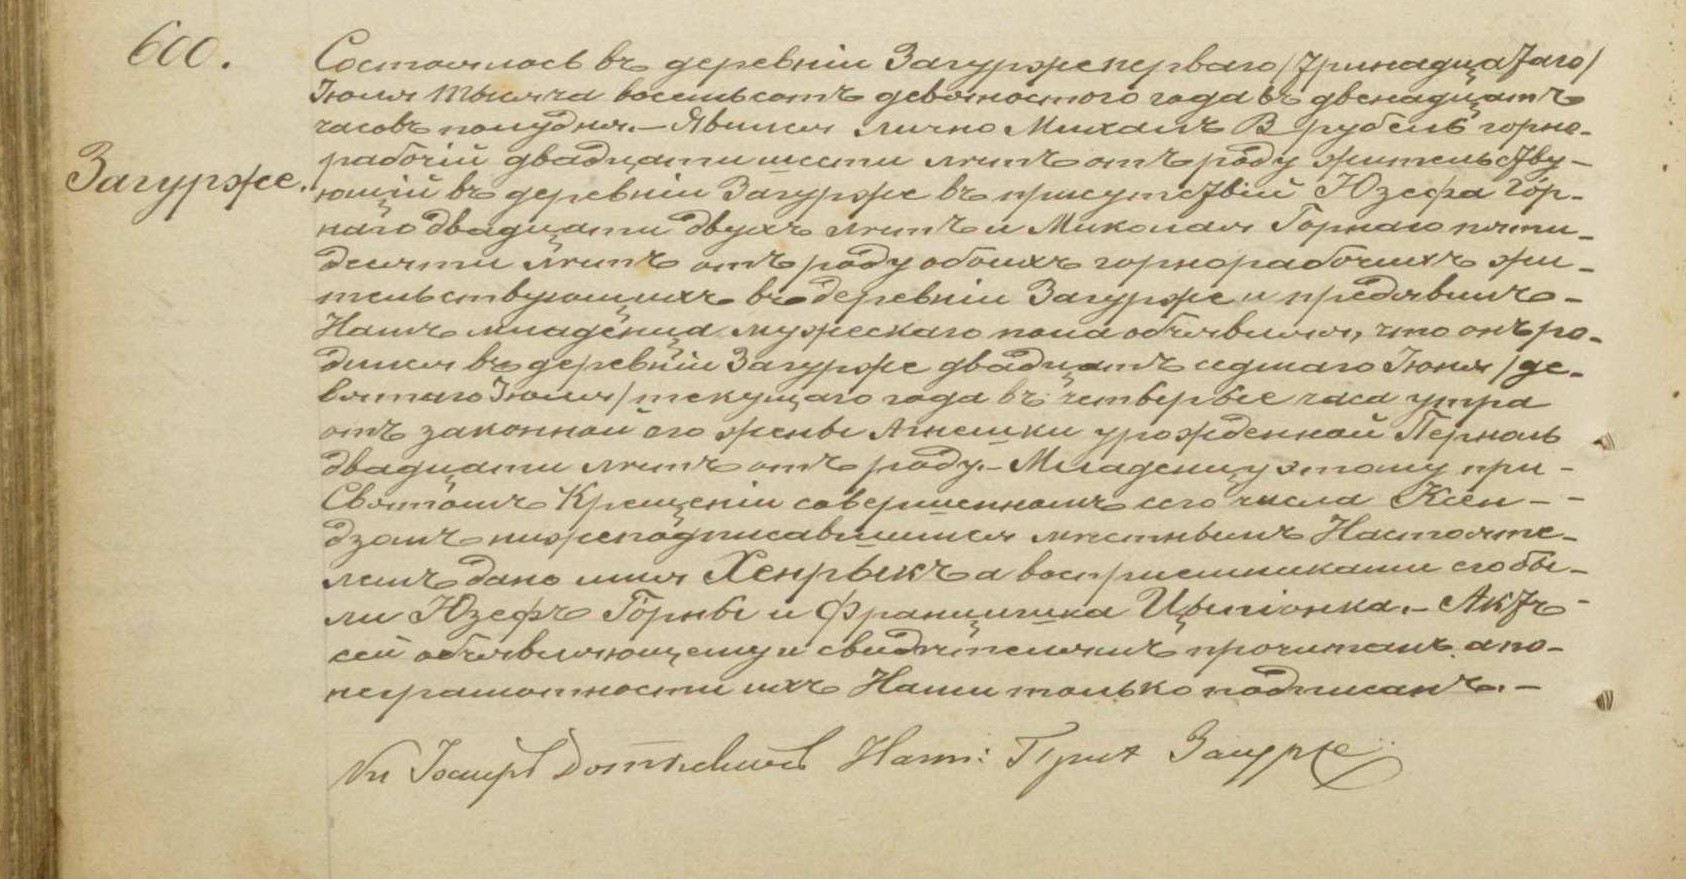 600.
Состоялось въ деревнѣи Загурже перваго /тринадцатаго/
Загурже.
Іюля тысяча восемьсотъ девяностого года въ двенадцать
часовъ полудня. – Явился лично Михаилъ Врубель горно-
рабочій двадцати шести лѣтъ отъ роду жительству-
ющій въ деревнѣи Загурже въ присутствіи Юзефа Гор-
наго двадцати двухъ лѣтъ и Миколая Горнаго пяти-
десяти лѣтъ отъ роду обоихъ горнорабочихъ жи-
тельствующихъ въ деревнѣи Загурже и предъявилъ -
Намъ младенца мужескаго пола объявляя, что онъ ро-
дился въ деревнѣи Загурже двадцать седмаго Іюня /де-
вятаго Іюля/ текущаго года въ четверые часа утра
отъ законной его жены Агнешки урожденной Перналь
двадцати лѣтъ отъ роду. – Младенцу этому при -
Святомъ Крещеніи совершенномъ сего числа Ксен - -
дзомъ нижеподписавшимся мѣстнымъ Настояте-
лемъ дано имя Хенрыкъ а воспріемниками его бы-
ли Юзефъ Горны и Францишка Цвіонка. – Актъ -
сей объявляющему и свидѣтелямъ прочитанъ а по-
неграмотности ихъ Нами только подписанъ. –
Наст: Прих Загурже